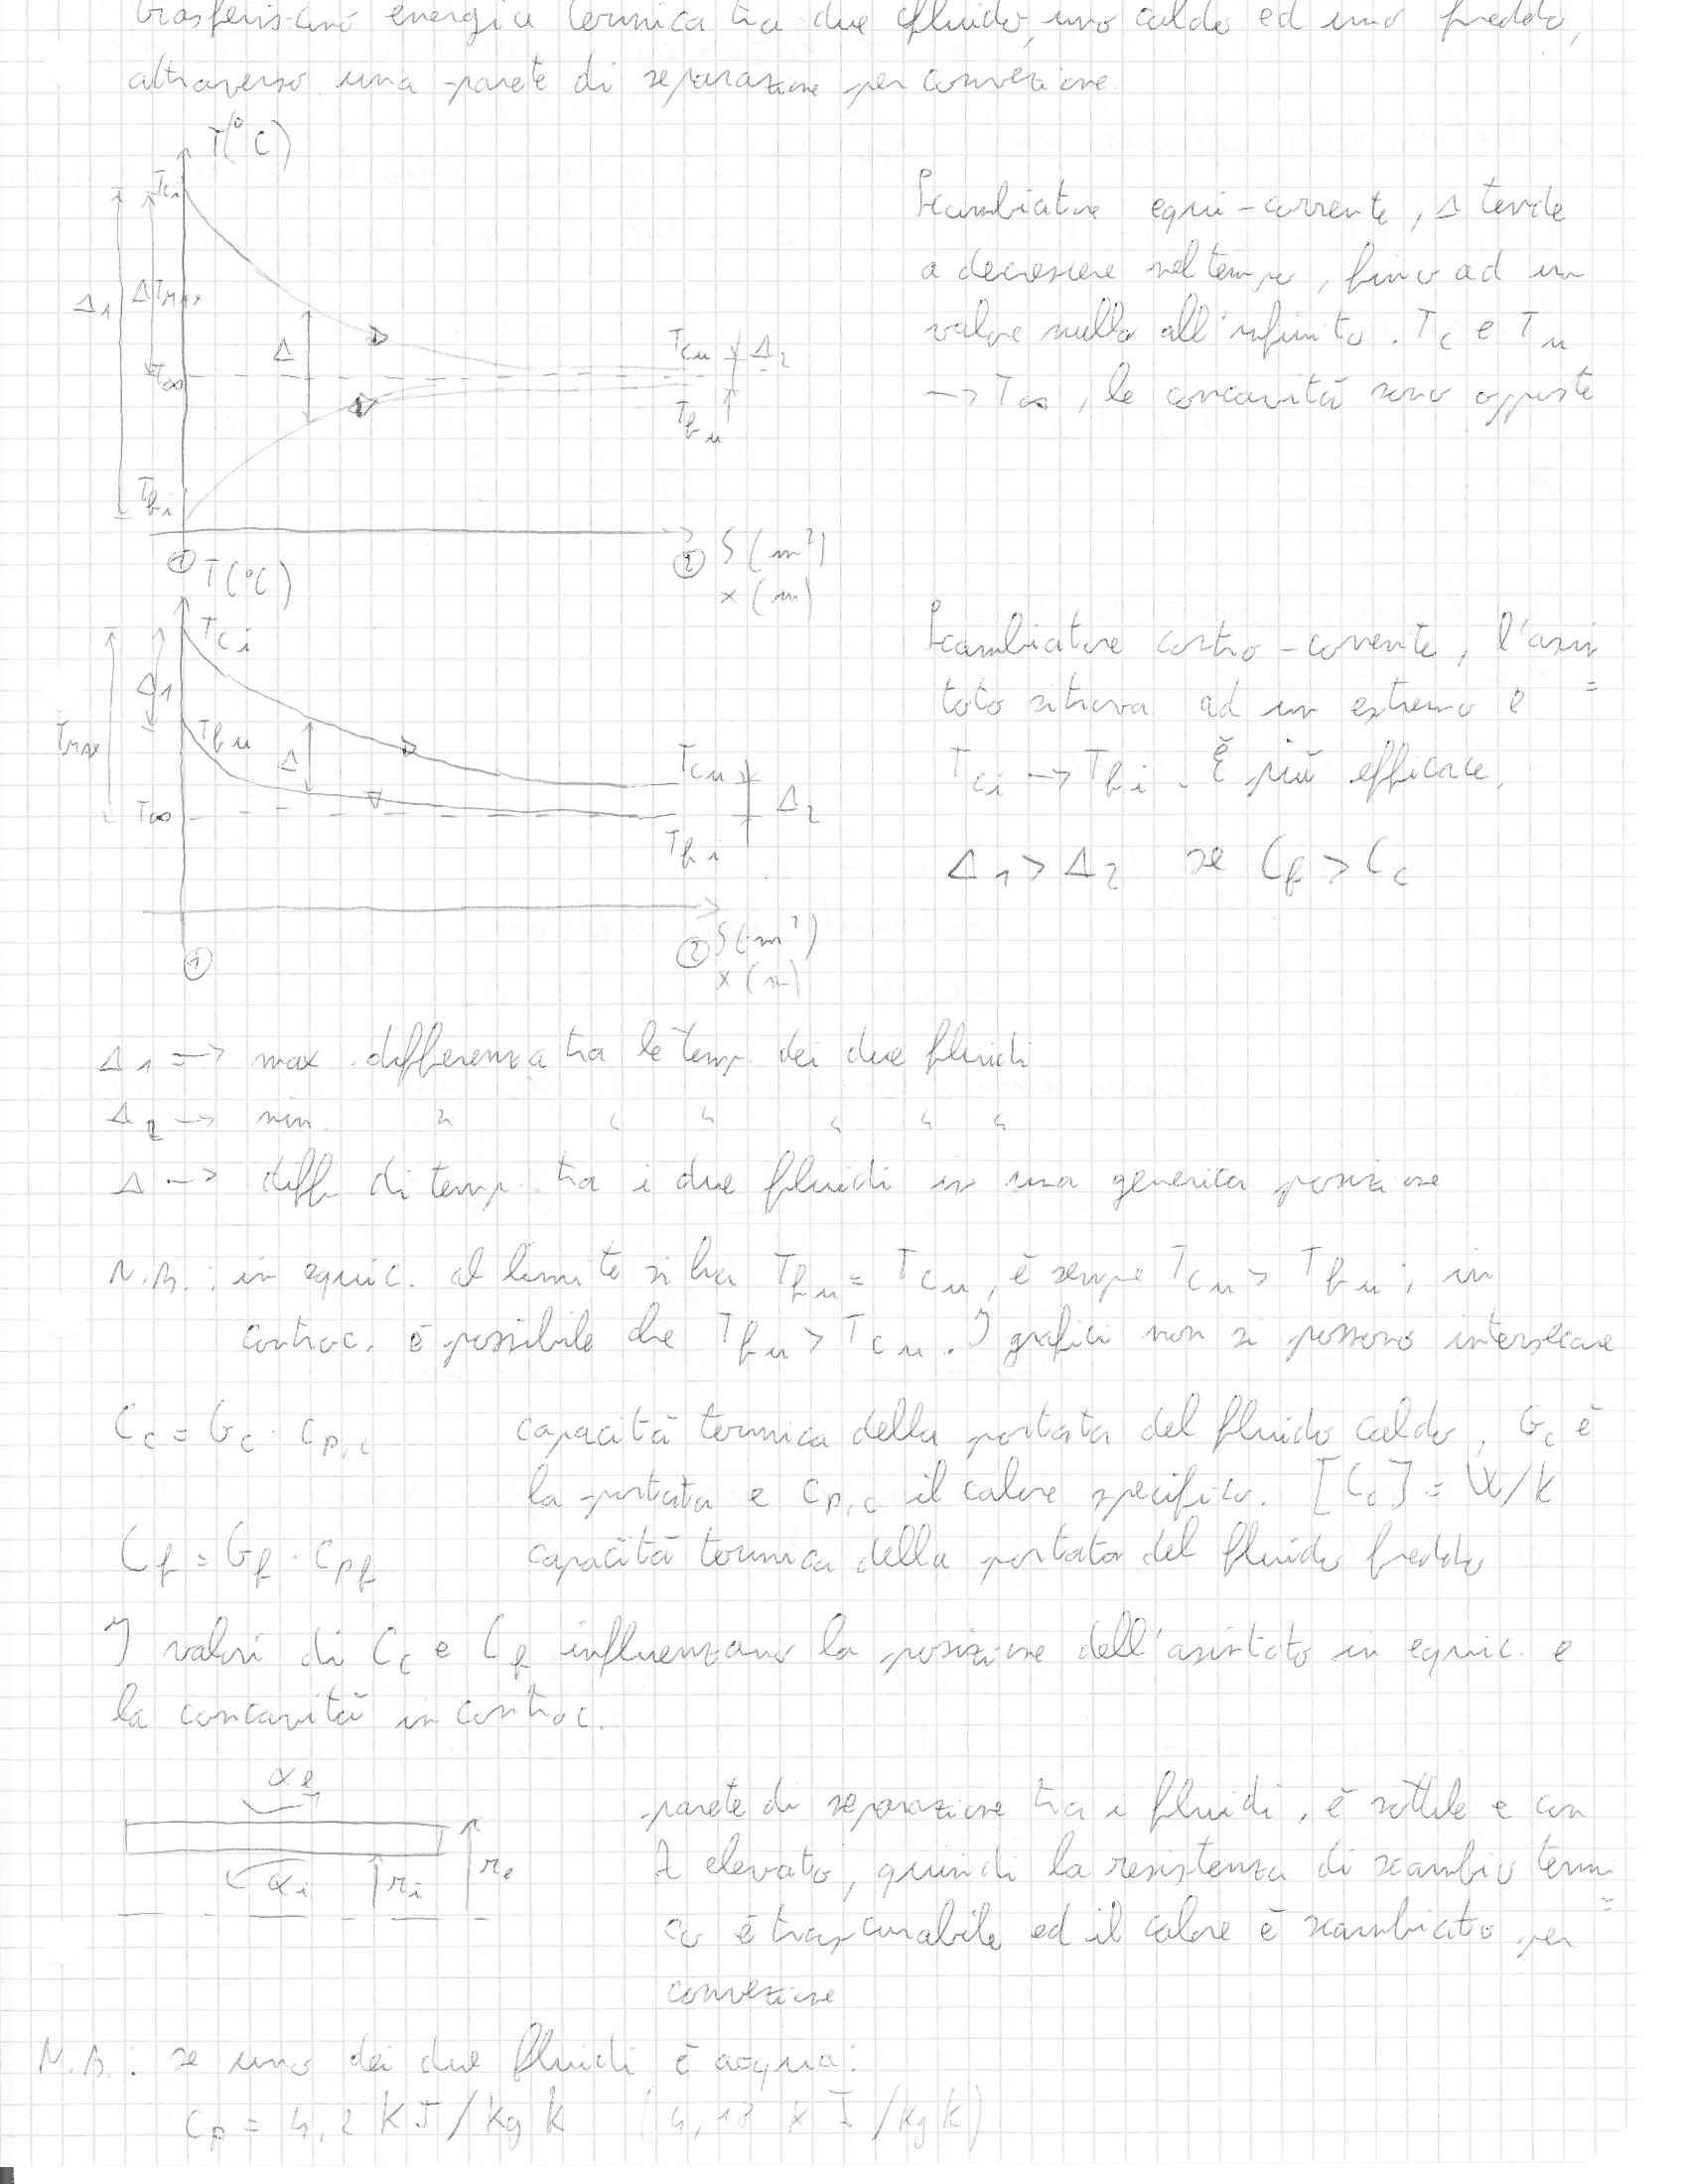 trasferiscano energia termica tra due fluido, uno caldo ed uno freddo,
attraverso una parete di separazione per convezione.
T(°C)
Tci
Δ1 ΔTMAX
Δ
T∞
Tcu Δ2
Tfu
Tfi
① ② S(m²)
x(m)
Scambiatore equi-corrente, Δ tende
a decrescere nel tempo, fino ad un
valore nullo all'infinito. Tc e Tu
→ T∞, le concavità sono opposte
T(°C)
Tci
Δ1
Tfu
TMAX
Δ
Tcu
T∞
Δ2
Tfi
① ② S(m²)
x(m)
Scambiatore contro-corrente, l'asin
toto si trova ad un estremo e
Tci → Tfi. È più efficace.
Δ1 > Δ2 se Cf > Cc
Δ1 => max. differenza tra le temp. dei due fluidi
Δ2 → min. " " " " " "
Δ → diff. di temp. tra i due fluidi in una generica posizione
N.B.: in equic. al limite si ha Tfu = Tcu, è sempre Tcu > Tfu; in
controc. è possibile che Tfu > Tcu. I grafici non si possono intersecare
Cc = Gc · cp,c capacità termica della portata del fluido caldo, Gc è
la portata e cp,c il calore specifico. [Cc] = W/K
Cf = Gf · cpf capacità termica della portata del fluido freddo
I valori di Cc e Cf influenzano la posizione dell'asintoto in equic. e
la concavità in controc.
αe
αi ri re
parete di separazione tra i fluidi, è sottile e con
λ elevato, quindi la resistenza di scambio termi
co è trascurabile ed il calore è scambiato per
convezione
N.B.: se uno dei due fluidi è acqua:
cp = 4,2 KJ/kgK (4,18 KJ/kgK)